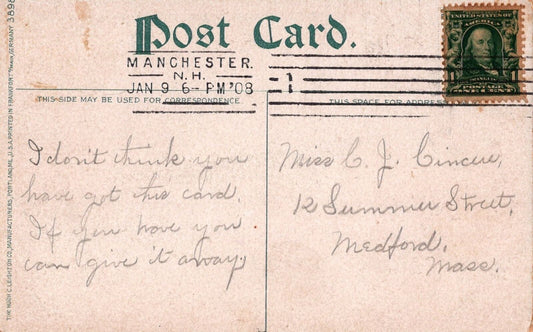 Post Card.
MANCHESTER.
N.H.
JAN 9 6-PM '08
1
UNITED STATES OF AMERICA
FRANKLIN
POSTAGE
ONE CENT
THIS SIDE MAY BE USED FOR CORRESPONDENCE
THIS SPACE FOR ADDRESS
I don't think you
have got this card.
If you have you
can give it away.
Miss C. J.
12 Summer Street,
Medford,
Mass.
THE HUGH C. LEIGHTON CO., MANUFACTURERS, PORTLAND, ME., U.S.A. PRINTED IN FRANKFORT GERMANY